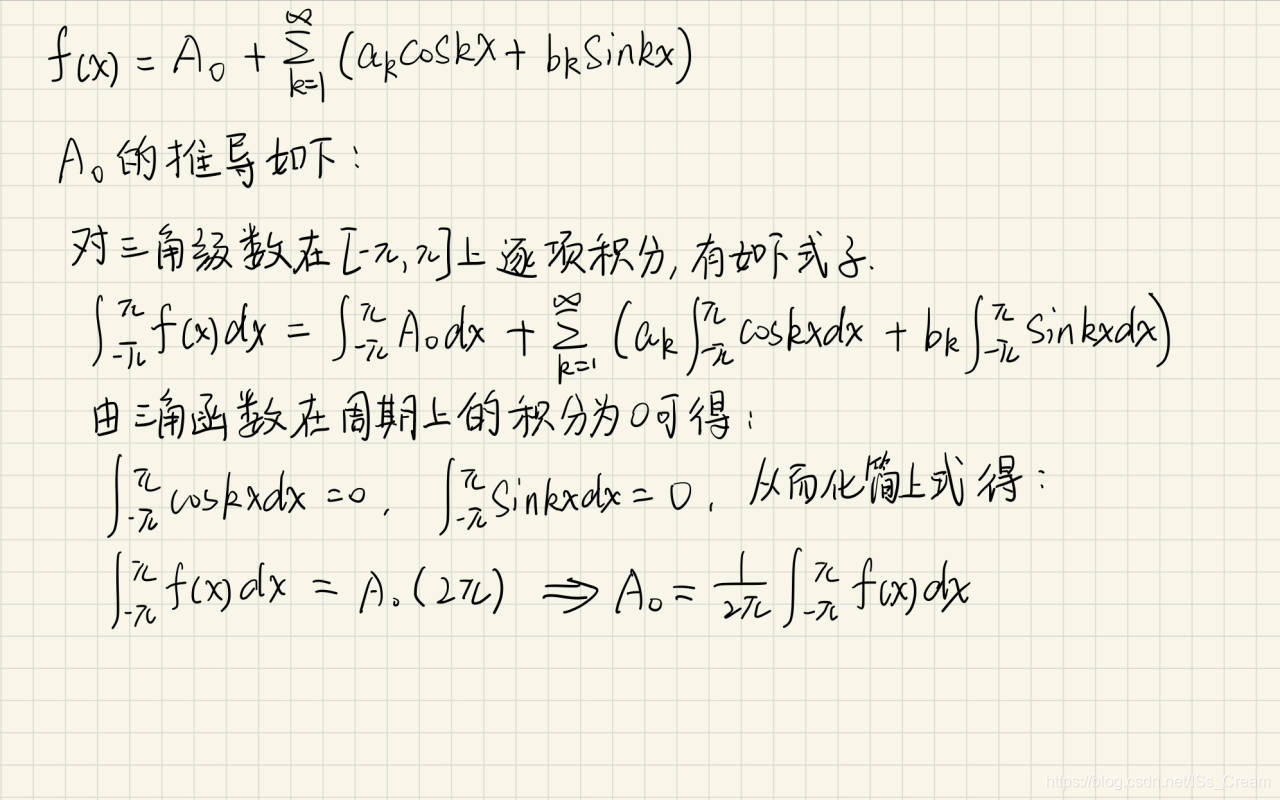 f(x) = A₀ + ∑_{k=1}^{∞} (aₖcoskx + bₖsinkx)
A₀的推导如下:
对三角级数在[-π,π]上逐项积分,有如下式子.
∫_{-π}^{π} f(x)dx = ∫_{-π}^{π} A₀dx + ∑_{k=1}^{∞} (aₖ∫_{-π}^{π} coskxdx + bₖ∫_{-π}^{π} sinkxdx)
由三角函数在周期上的积分为0可得:
∫_{-π}^{π} coskxdx = 0, ∫_{-π}^{π} sinkxdx = 0, 从而化简上式得:
∫_{-π}^{π} f(x)dx = A₀(2π) ⇒ A₀ = \frac{1}{2π} ∫_{-π}^{π} f(x)dx
https://blog.csdn.net/ISs_Cream